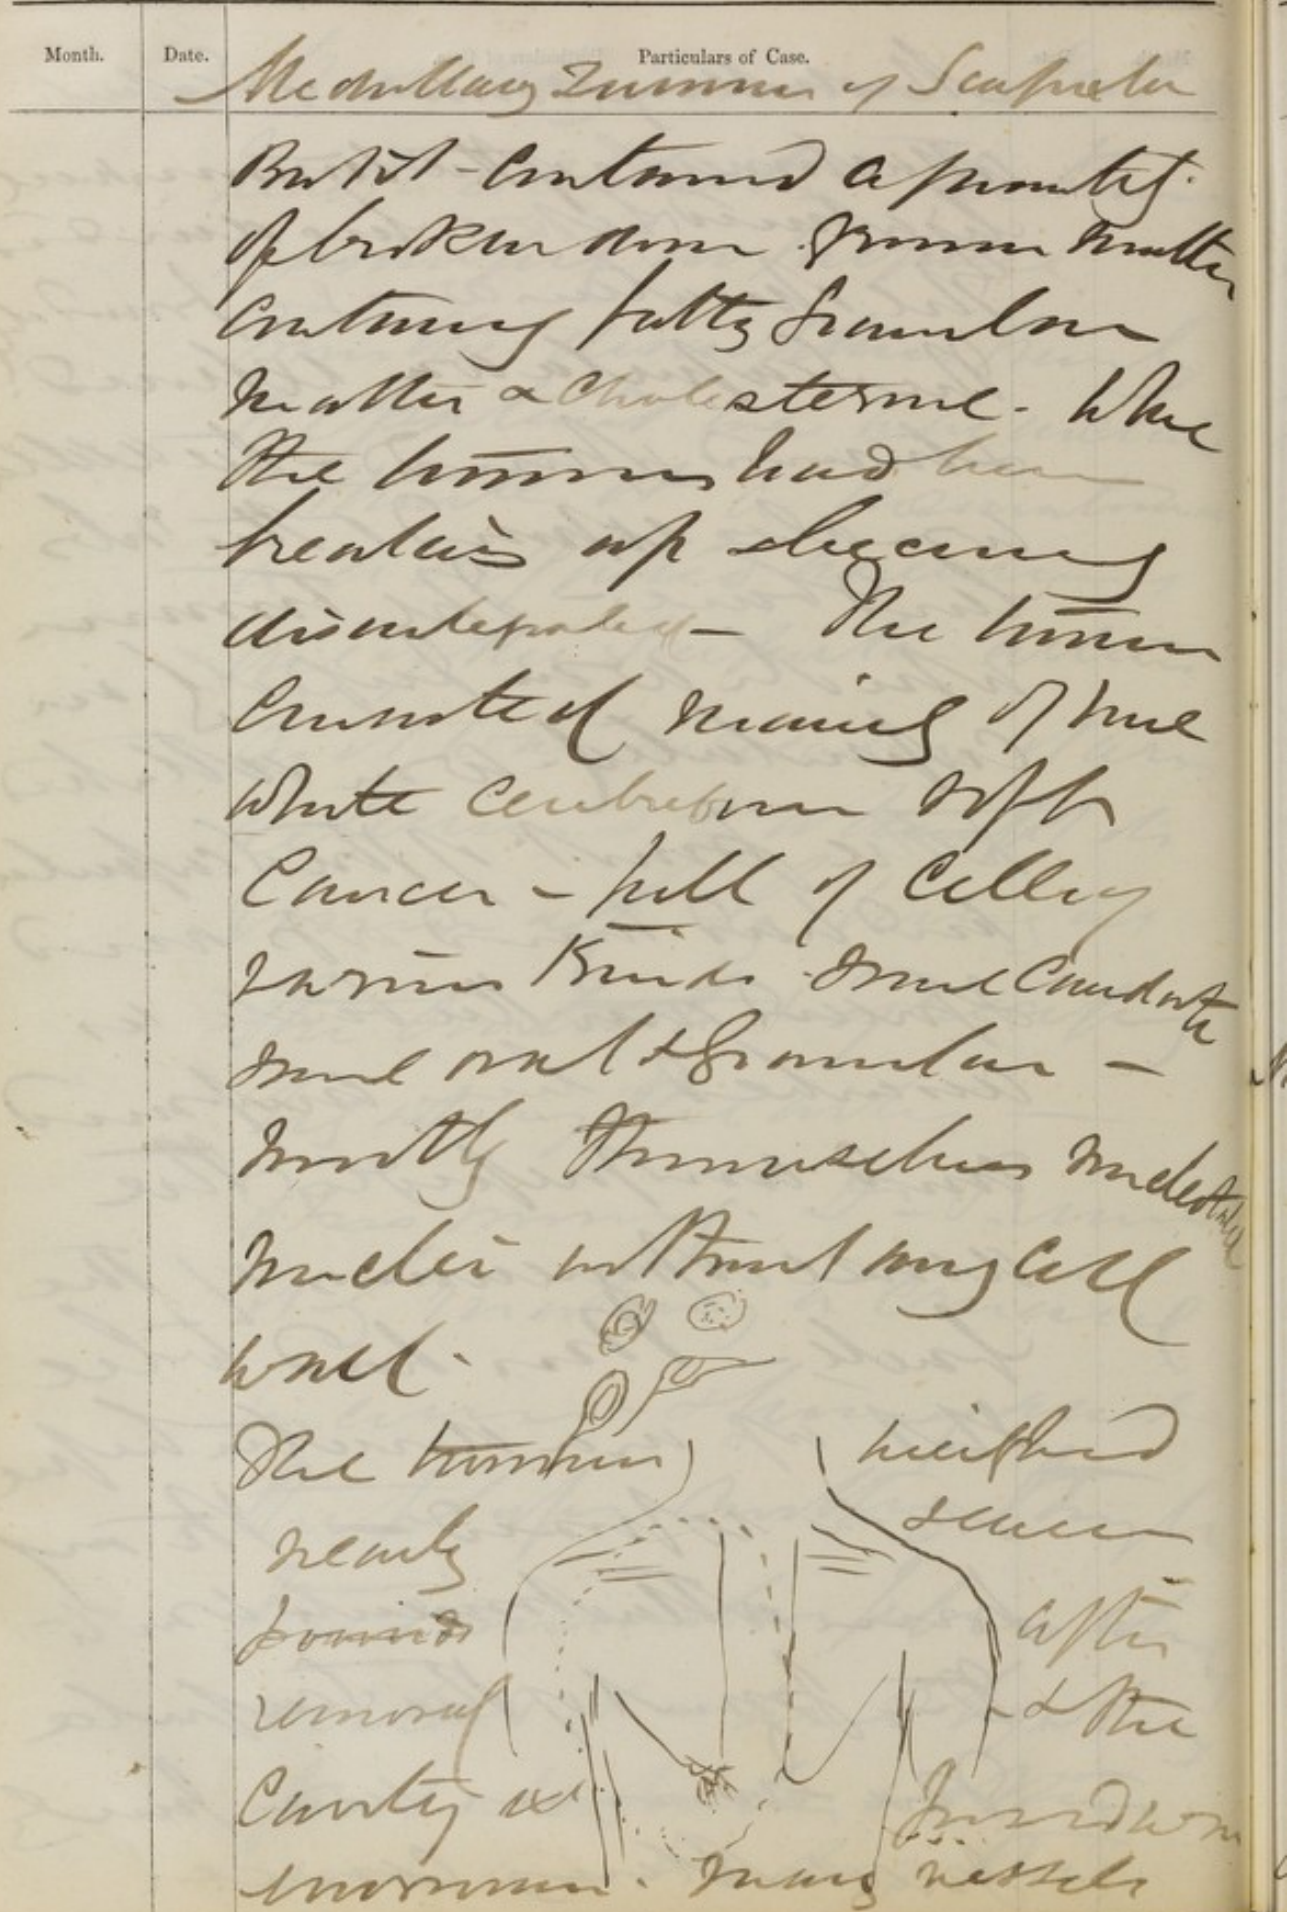 Month. Date. Particulars of Case.
Medullary Tumour of Scapula
But it contained a quantity
of broken down grumous matter
containing fatty granular
matter & Cholesterine. Where
the tumour had been
breaking up & becoming
disintegrated — The tumour
consisted mainly of true
white cerebriform soft
Cancer – full of Cells of
various Kinds some Caudate
some oval & granular —
mostly themselves nucleated
nuclei without any Cell
wall.
The tumour weighed
nearly seven
pounds after
removal & the
Cavity was
enormous. many vessels